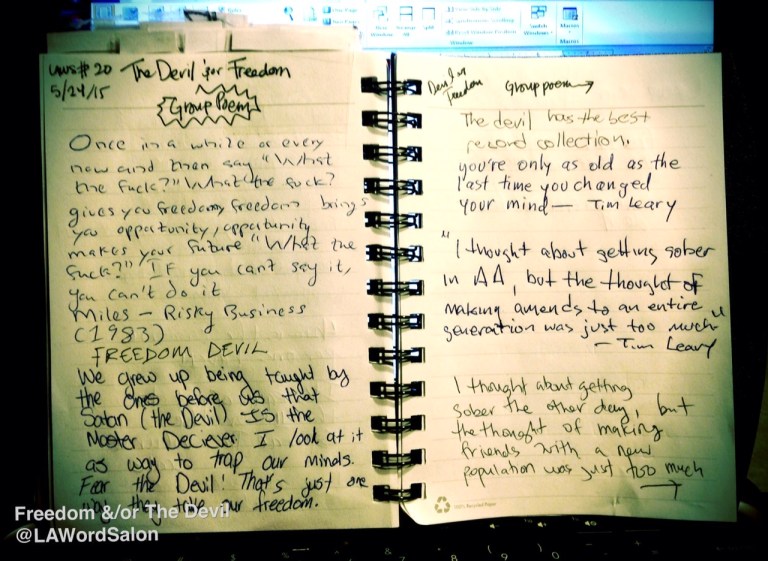 LAWS# 20 The Devil &/or Freedom
5/24/15
Group Poem
Once in a while or every
now and then say "What
the Fuck?" What the fuck?
gives you freedom, freedom brings
you opportunity, opportunity
makes your future "What the
fuck?" If you can't say it,
you can't do it
Miles - Risky Business
(1983)
FREEDOM DEVIL
We grew up being taught by
the ones before us that
Satan (the Devil) IS the
Master Deciever I look at it
as way to trap our minds.
Fear the Devil! That's just one
way they take our freedom.
Devil or Freedom Group poem →
The devil has the best
record collection.
you're only as old as the
last time you changed
your mind — Tim Leary
"I thought about getting sober
in AA, but the thought of
making amends to an entire
generation was just too much"
— Tim Leary
I thought about getting
sober the other day, but
the thought of making
friends with a new
population was just too much
→
100% Recycled Paper
Freedom &/or The Devil
@LAWordSalon